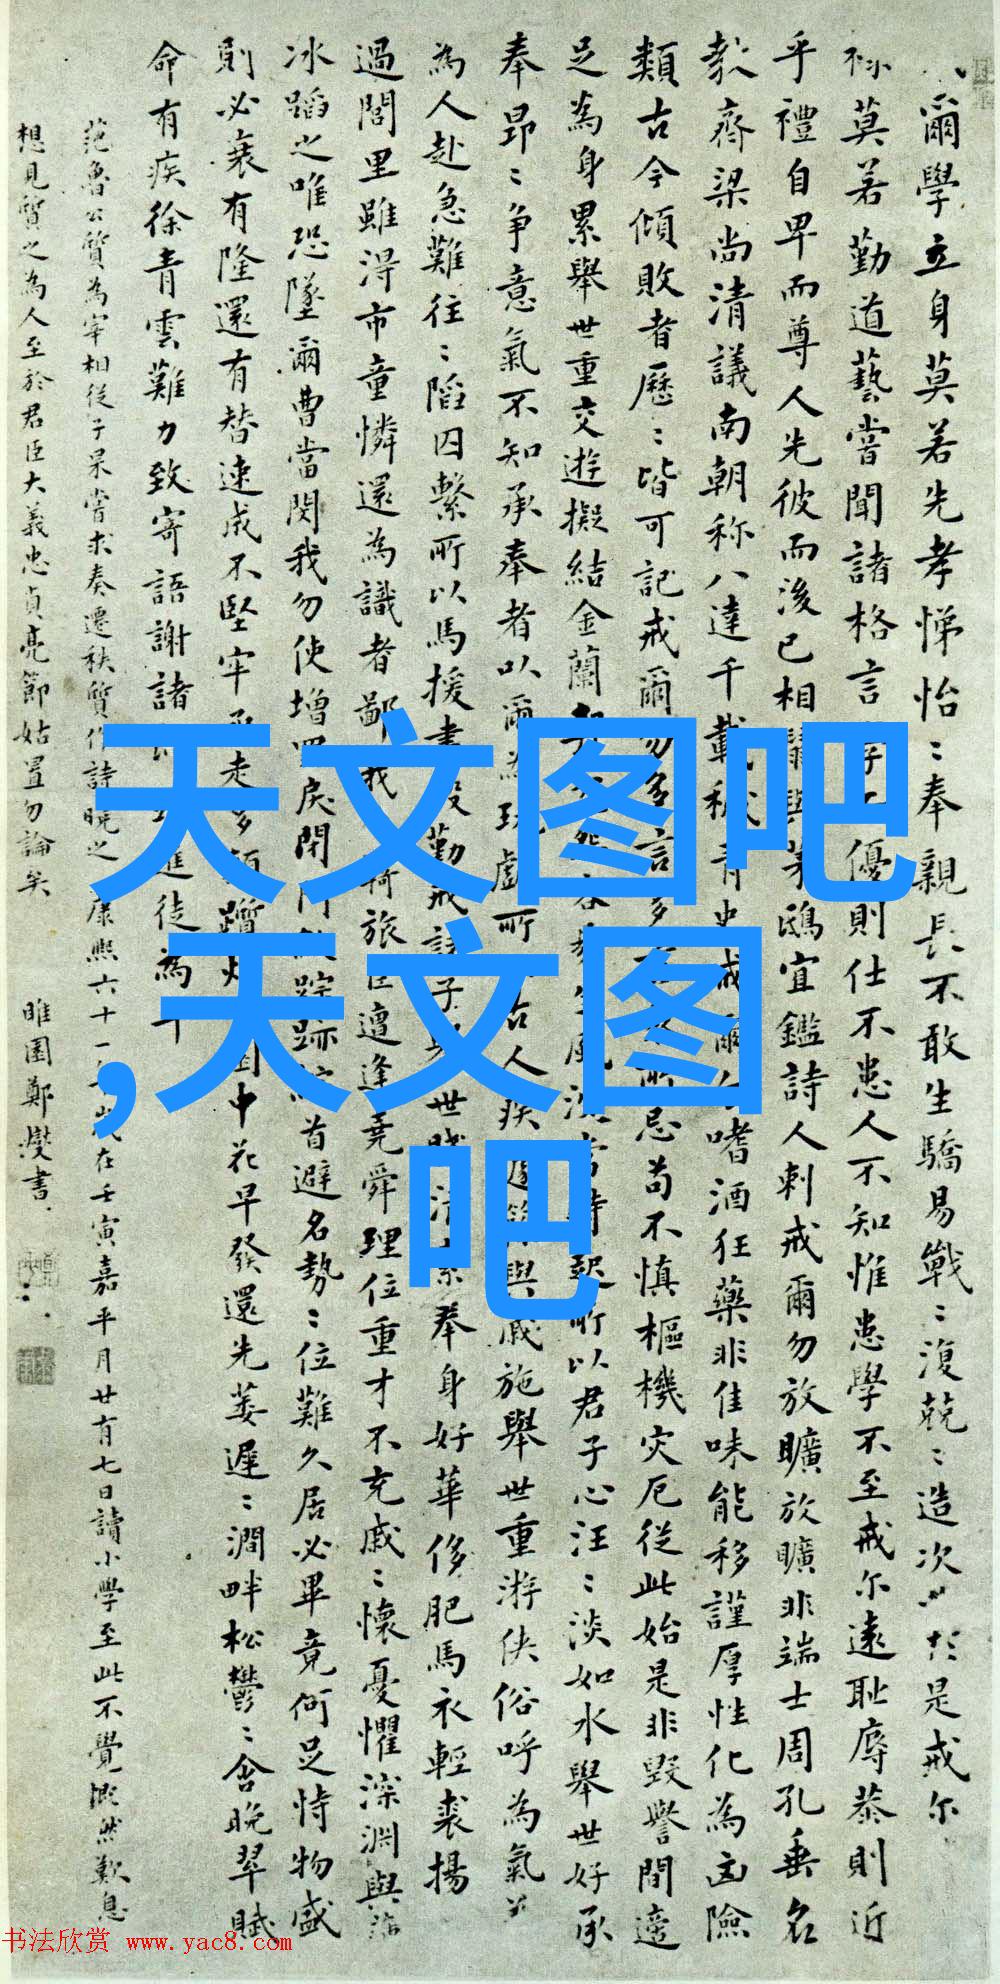 爾學立身莫若先孝悌怡〻奉親長不敢生驕易戰〻復兢〻造次是戒尔
祿莫若勤道藝嘗聞諸格言學優則仕不患人不知惟患學不至戒尔遠恥辱恭則近
乎禮自卑而尊人先彼而後己相鼠與茅鴟宜鑑詩人刺戒爾勿放曠放曠非端士周孔垂名
教齊梁尚清議南朝称八達千載穢青史戒爾勿嗜酒狂藥非佳味能移謹厚性化為凶險
類古今傾敗者歷〻皆可記戒爾勿多言多所忌苟不慎樞機灾厄從此始是非毀譽間適
足為身累舉世重交遊擬結金蘭契容易生風波當時起所以君子心汪〻淡如水舉世好承
奉昂〻争意氣不知承奉者以爾為玩戲所古人疾與戚施舉世重游侠俗呼為氣
為人赴急難往〻陷囚繫所以馬援書殷勤戒諸子舉世賤清素奉身好華侈肥馬衣輕裘揚
過閭里雖淂市童憐還為識者鄙我旅臣遭逢堯舜理位重才不充戚〻懷憂懼深淵與
冰蹈之唯恐墜爾曹當閔我勿使增罪戾閉門踪跡首避名勢〻位難久居必畢竟何足恃物盛
則必衰有隆還有替速成不堅牢亟走多顛躓灼園中花早發還先萎遲〻澗畔松鬱〻含晚翠賦
命有疾徐青雲難力致寄語謝諸進徒為耳
范魯公質為宰相從子杲嘗求奏遷秩質作詩曉之康熙六十一年歲在壬寅嘉平月廿有七日讀小學至此不覺慨然歎息
想見質之為人至於君臣大義忠貞亮節姑置勿論矣
睢園鄭燮書
天文图吧
,天文图
吧
书法欣赏 www.yac8.com